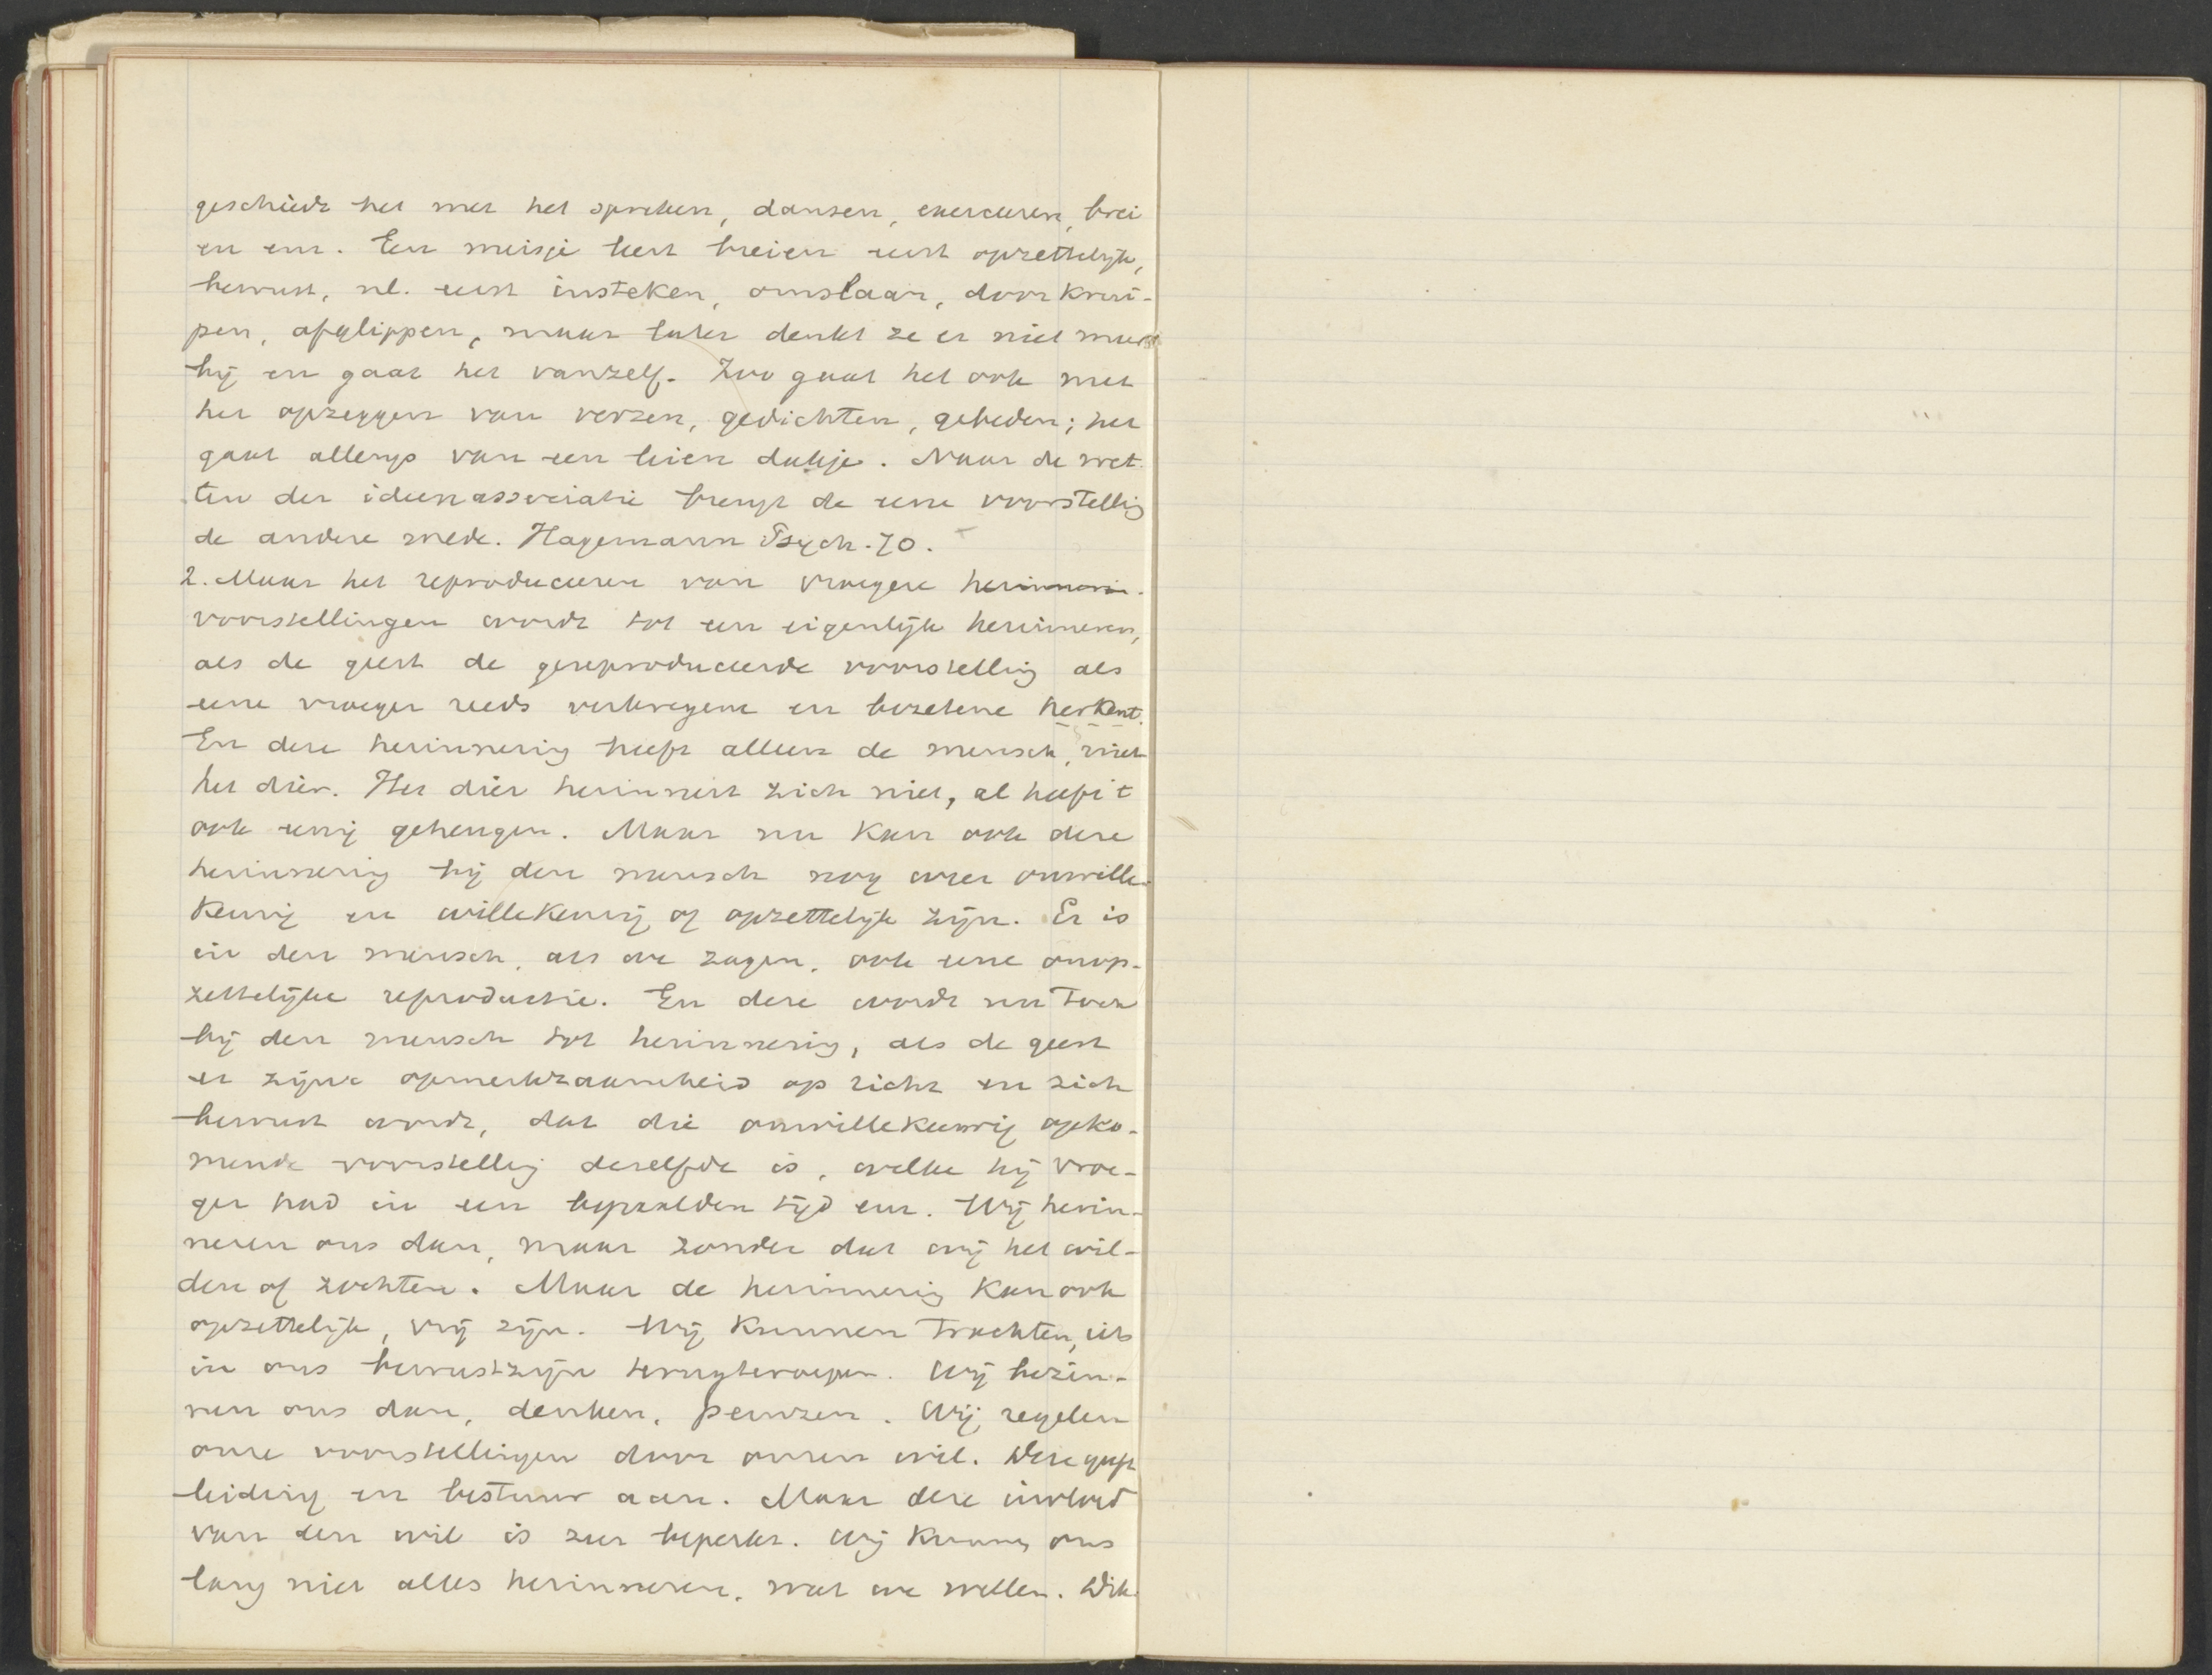 geschiedt het met het spreken, dansen, exerceeren, brei
en enz. Een meisje leert breien eerst opzettelijk,
bewust, nl. eerst insteken, omslaan, doorkrui-
pen, afglippen, maar later denkt ze er niet meer
bij en gaat het vanzelf. Zoo gaat het ook met
het opzeggen van verzen, gedichten, gebeden; het
gaat allengs van een leien dakje. Naar de wet-
ten der ideenassociatie brengt de eene voorstellig
de andere mede. Hagemann Psych. 70.
2. Maar het reproduceeren van vroegere herinneri-
voorstellingen wordt tot een eigenlijk herinneren,
als de geest de gereproduceerde voorstellig als
eene vroeger reeds verkregene en bezetene herkent.
En deze herinnerig heeft alleen de mensch, niet
het dier. Het dier herinnert zich niet, al heeft 't
ook eenig geheugen. Maar nu kan ook deze
herinnerig bij den mensch nog weer onwille-
keurig en willekeurig of opzettelijk zijn. Er is
in den mensch, als we zagen, ook eene onop-
zettelijke reproductie. En deze wordt nu toch
bij den mensch tot herinnerig, als de geest
er zijne opmerkzaamheid op richt en zich
bewust wordt, dat die onwillekeurig opko-
mende voorstellig dezelfde is, welke hij vroe-
ger had in een bepaalden tijd enz. Wij herin-
neren ons dan, maar zonder dat wij het wil-
den of zochten. Maar de herinnerig kan ook
opzettelijk, vrij zijn. Wij kunnen trachten, iets
in ons bewustzijn terugteroepen. Wij bezin-
nen ons dan, denken, peinzen. Wij regelen
onze voorstellingen door onzen wil. Deze geeft
leiding en bestuur aan. Maar deze invloed
van den wil is zeer beperkt. Wij kunnen ons
lang niet alles herinneren, wat we willen. Dik